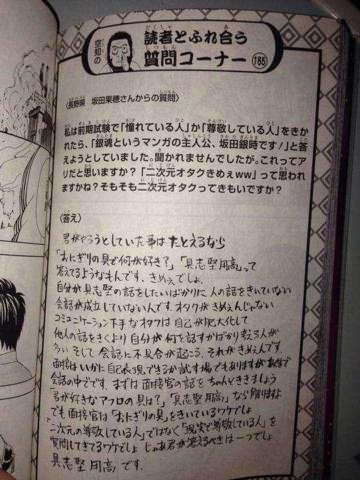 空知の
読者とふれ合う
質問コーナー
185
〈長野県 坂田果穂さんからの質問〉
私は前期試験で「憧れている人」か「尊敬している人」をきか
れたら、「銀魂というマンガの主人公、坂田銀時です!」と答
えようとしていました。聞かれませんでしたが。これってア
リだと思いますか?「二次元オタクきめぇww」って思わ
れますかね?そもそも二次元オタクってきもいですか?
〈答え〉
君がやろうとしていた事は たとえるなら
「おにぎりの具で何が好き?」「具志堅用高」って
答えてるようなもんです。きめぇでしょ。
自分が具志堅の話をしたいばかりに 人の話をきいていない
会話が成立していないんです。オタクがきめぇんじゃない
コミュニケーション下手なオタクは自己が肥大化して
他人の話をきくより 自分が何て話すかばかり考える人が
多い そして 会話に不具合が起こる それがきめぇんです
面接はいかに自己表現できるか試す場でもありますがあくまで
会話の中でです。まずは面接官の話をちゃんとききましょう
君が好きなアフロの具は?「具志堅用高」なら
でも面接官は「おにぎりの具」をきいているワケでしょ
二次元の尊敬している人」ではなく「現実で尊敬している人」を
質問してきてるワケでしょ じゃあ君が答えるべきは一つでしょ
具志堅用高です。